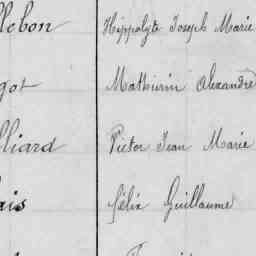 llebon Hippolyte Joseph Marie
got Mathurin Alexandre
lliard Pierre Jean Marie
ais Félix Guillaume